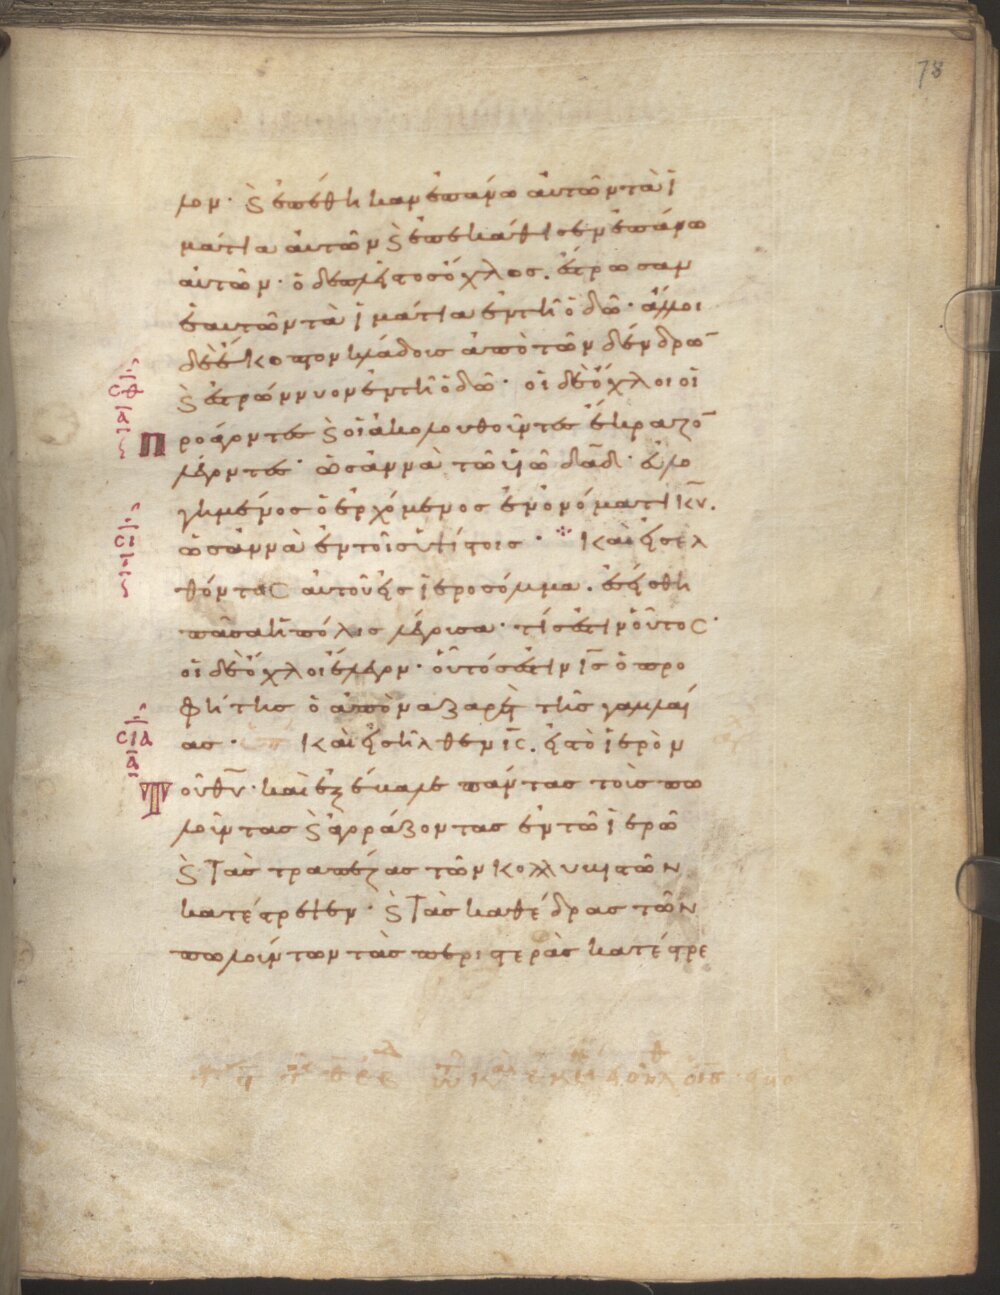 78
λον· ϗ ἐπέθηκαν ἐπάνω αὐτῶν τὰ ἱ
μάτια αὐτῶν ϗ ἐπεκάθισεν ἐπάνω
αὐτῶν· ὁ δὲ πλεῖστος ὄχλος. ἔστρωσαν
ἑαυτῶν τὰ ἱμάτια ἐν τῆ ὁδῶ· ἄλλοι
δὲ ἔκοπτον κλάδους ἀπὸ τῶν δένδρω̅
ϗ ἐστρώννυον ἐν τῆ ὁδῶ· οἱ δὲ ὄχλοι οἱ
σθ
α
Προάγοντες ϗ οἱ ἀκολουθοῦντες ἔκραζο̅
λέγοντες· ὡσαννὰ τῶ υἱῶ δα̅δ· εὐλο
γημένος ὁ ἐρχόμενος ἐν ὀνόματι κ̅υ.
σι
ὡσαννὰ ἐν τοῖς ὑψίστοις· Καὶ εἰσελ
θόντος αὐτοῦ εἰς ἱεροσόλυμα. ἐσείσθη
πᾶσα ἡ πόλις λέγουσα· τίς ἐστιν οὗτος·
οἱ δὲ ὄχλοι ἔλεγον· οὗτός ἐστιν ι̅ς ὁ προ
φήτης ὁ ἀπὸ ναζαρὲτ τῆς γαλιλαί
σια
α
ας· Καὶ εἰσῆλθεν ι̅ς. εἰς τὸ ἱερὸν
Τοῦ θ̅υ· καὶ ἐξέβαλε πάντας τοὺς πω
λοῦντας ϗ ἀγοράζοντας ἐν τῶ ἱερῶ
ϗ τὰς τραπέζας τῶν κολλυβιστῶν
κατέστρεψεν· ϗ τὰς καθέδρας τῶν
πωλούντων τὰς περιστερὰς κατέστρε